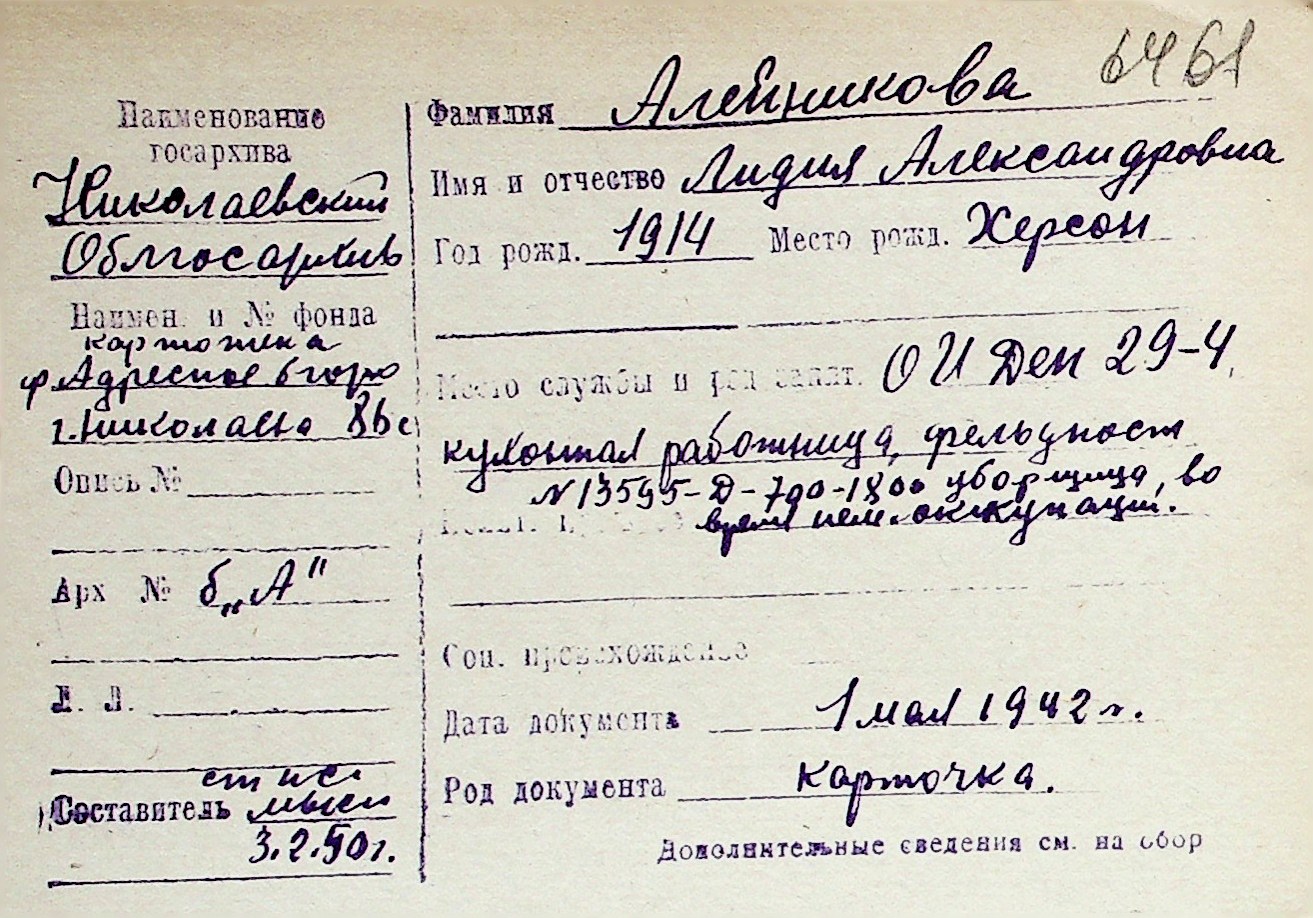 6461
Наименование
госархива
Николаевский
Облгосархив
Наимен. и № фонда
картотека
ф. Адресное бюро
г. Николаева
Опись №
Арх № б „А"
Л. Л.
Составитель
3.2.50г.
Фамилия Алейникова
Имя и отчество Лидия Александровна
Год рожд. 1914 Место рожд. Херсон
Место службы и род занят. 29-4
кухонная работница, фельдпост
N 13595-Д-700-1800 уборщица, во
время нем. оккупации.
Соц. происхождение
Дата документа 1 мая 1942 г.
Род документа карточка.
Дополнительные сведения см. на обор